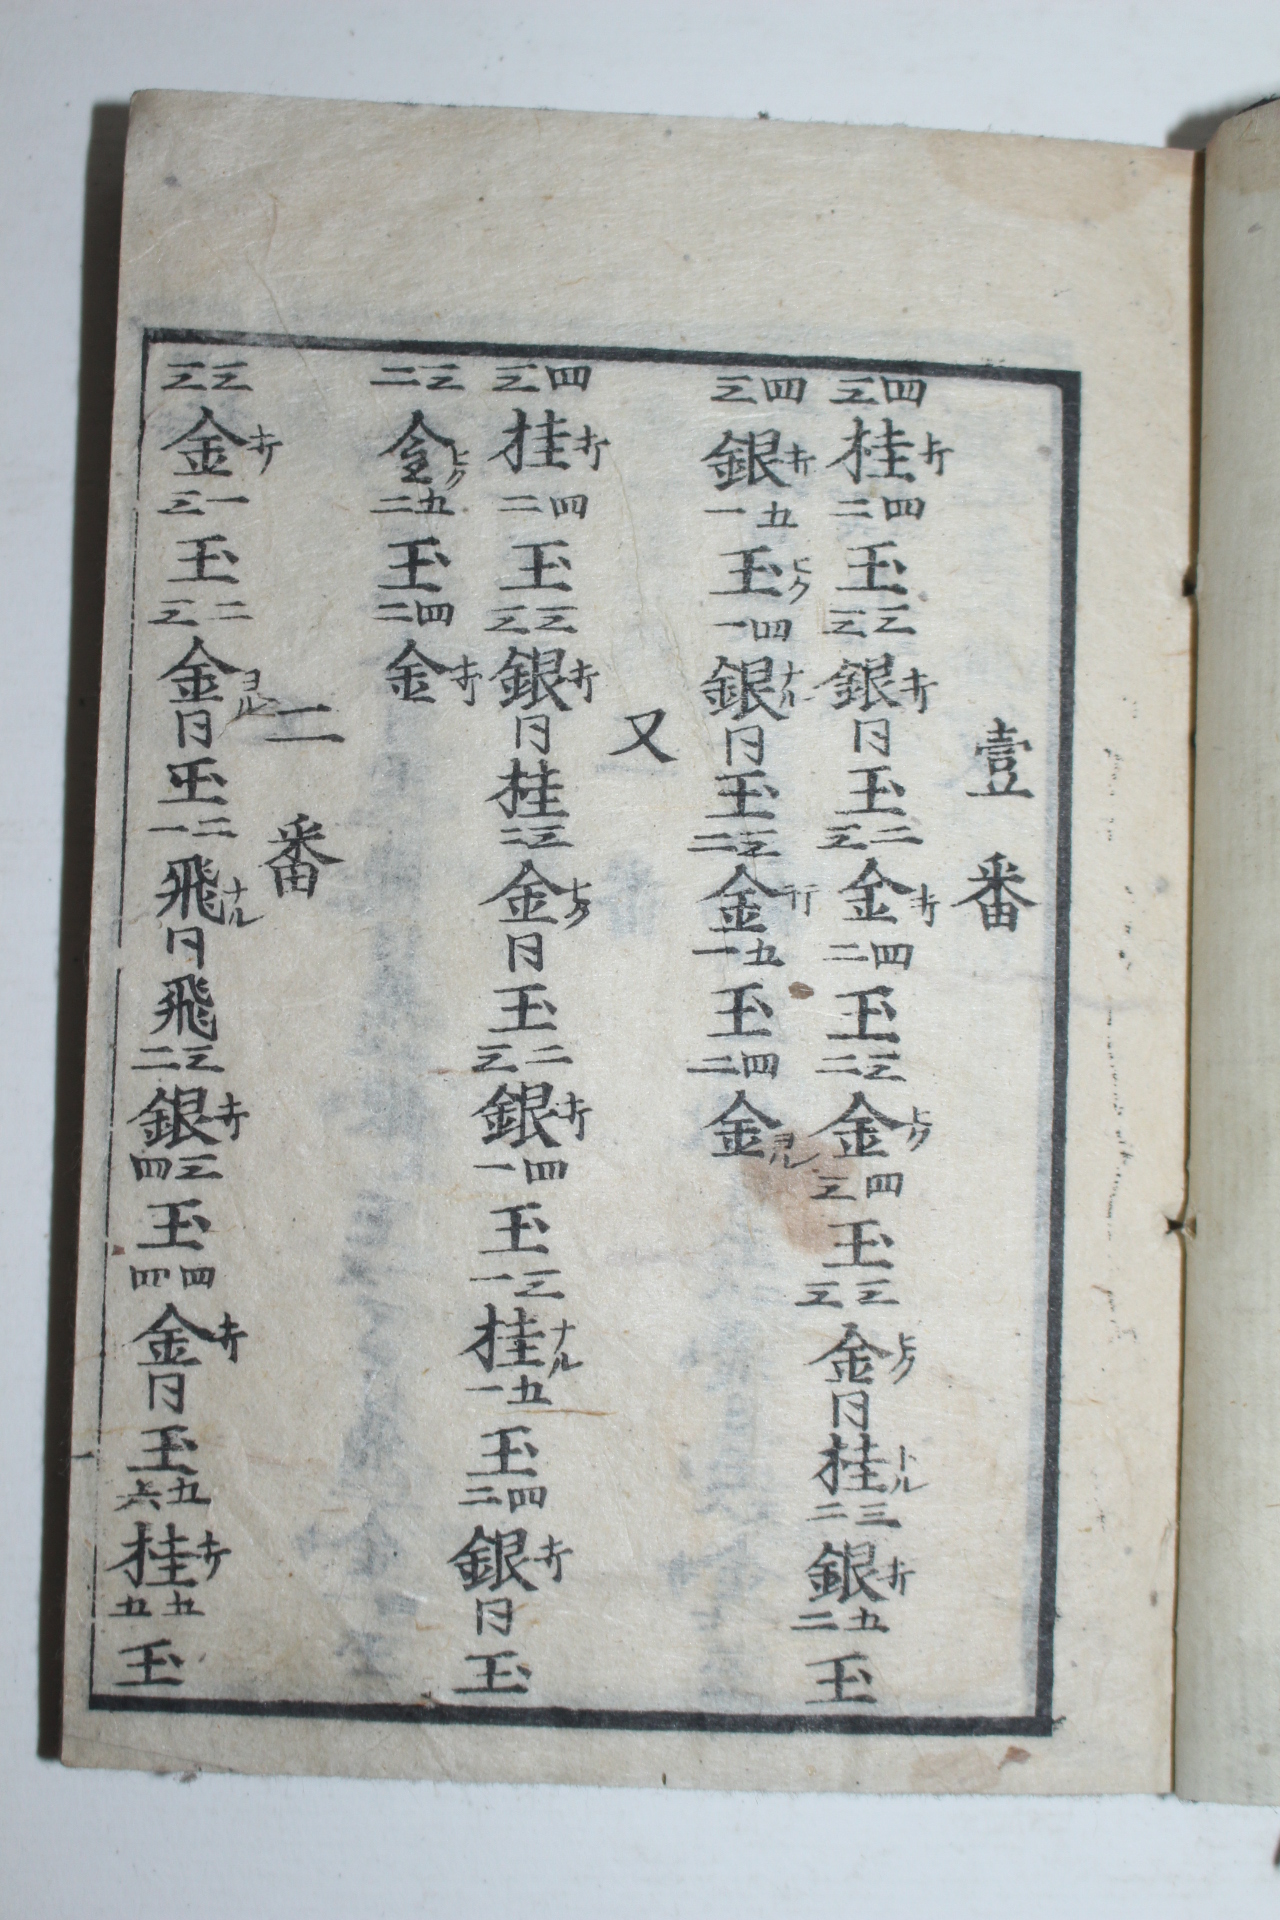 壹番
四三桂打四二玉三三銀打同玉二三金打四二玉三二金ヒク四三玉三三金ヒク同桂トル三二銀打五二玉
四三銀打五一玉ヒク四一銀ナル同玉三二金行五一玉四二金ヨル
又
四三桂打四二玉三三銀打同桂三二金ヒク同玉二三銀打四一玉三一桂ナル五一玉四二銀打同玉
三二金ヒク五二玉四二金打
二番
三三金打一三玉二三金ヨル同玉二一飛ナル同飛三二銀打三四玉四四金打同玉五六桂打五五玉